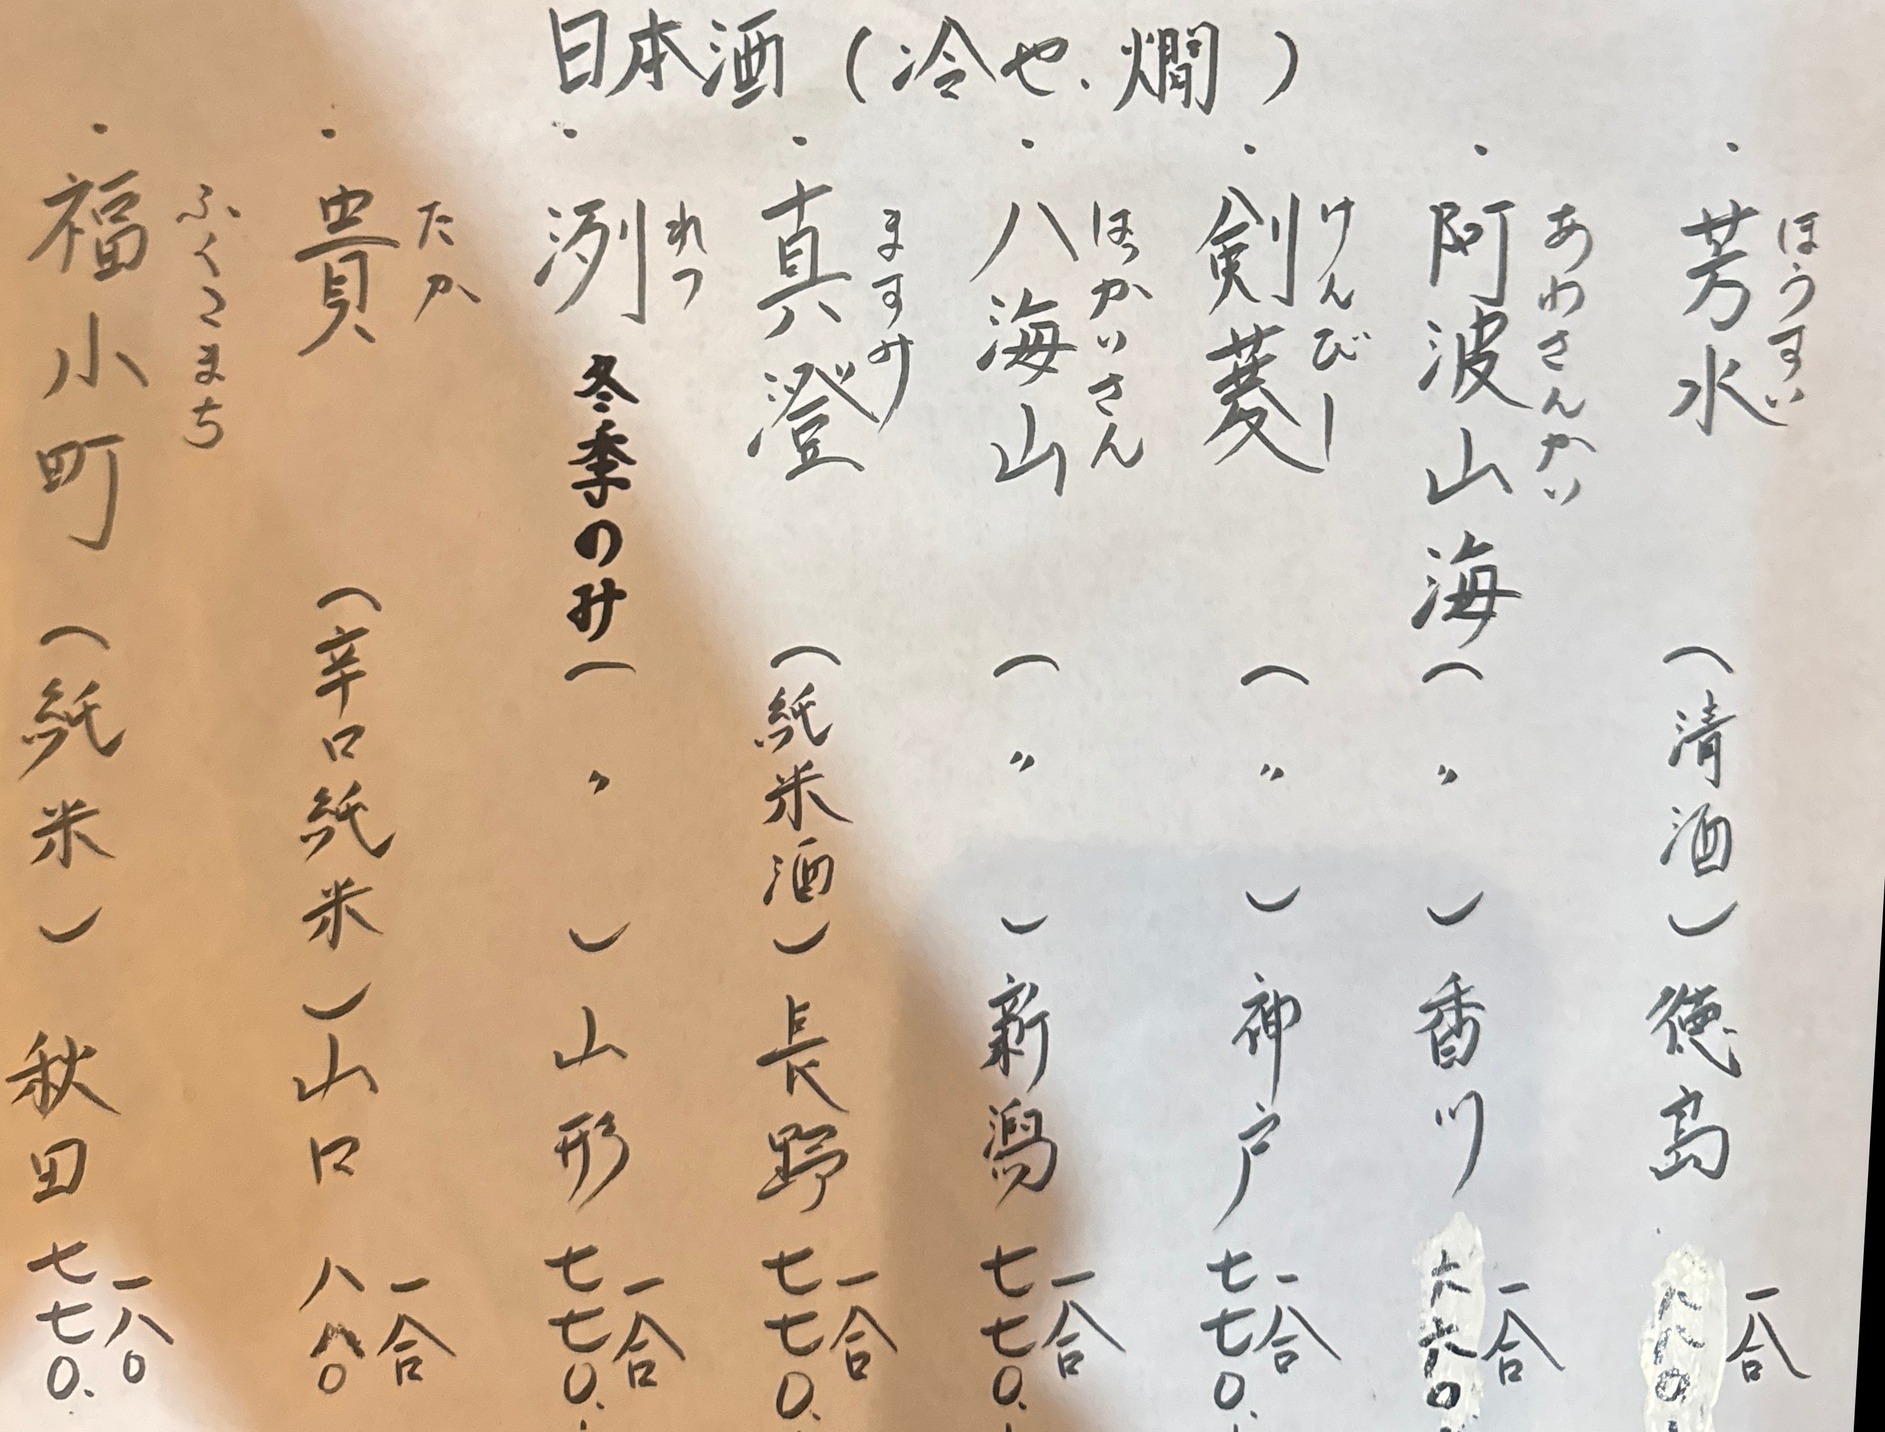 日本酒（冷や、燗）
ほうすい
・芳水（清酒）徳島
一合
あわさんかい
・阿波山海（〃）香川 六六0
一合
けんびし
・剣菱（〃）神戸 七七0.
一合
はっかいさん
・八海山（〃）新潟 七七0.
一合
ますみ
・真澄（純米酒）長野 七七0.
一合
れつ
・洌 冬季のみ（〃）山形 七七0.
一合
たか
・貴（辛口純米）山口 八八0
一合
ふくこまち
・福小町（純米）秋田 七七0.
一合